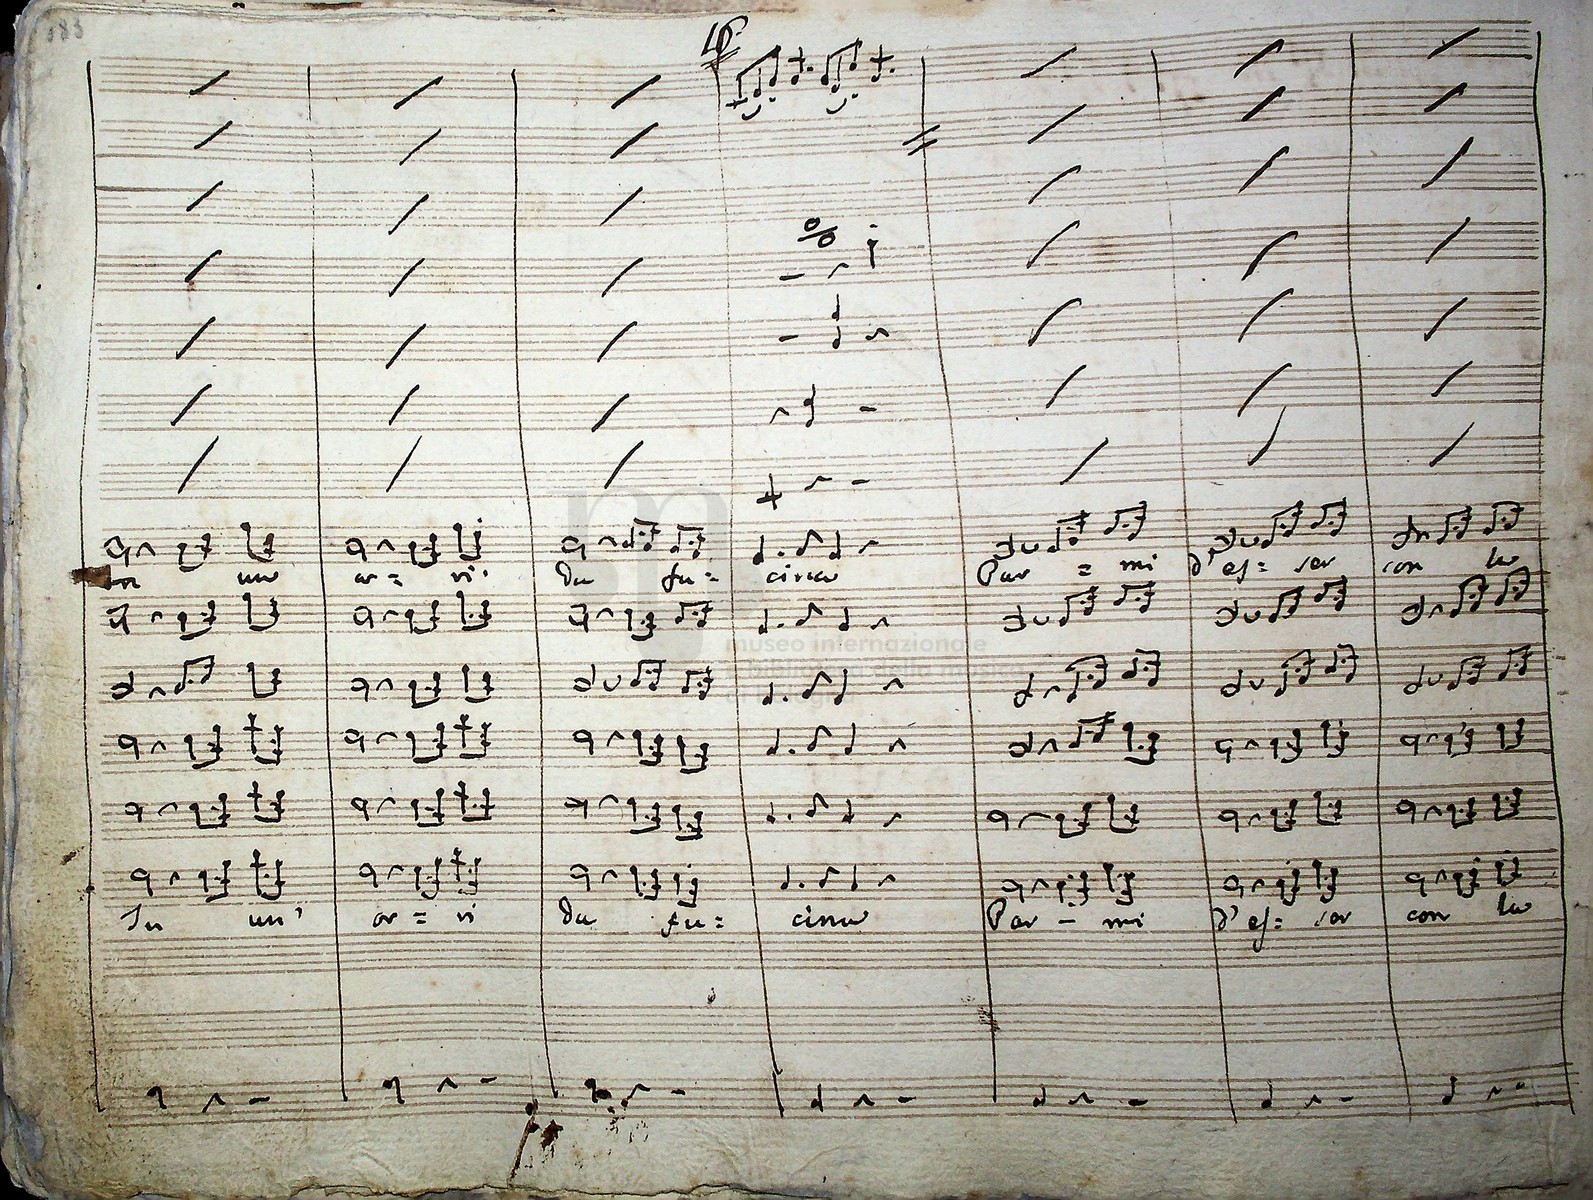 183
in un' or = ri' da fu = cina Par = mi d'es = ser con la
museo internazionale
biblioteca della musica
In un' or = ri da fu = cina Par - mi d'es = ser con la